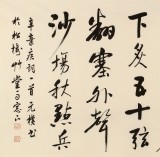 下炙五十弦
翻塞外聲
沙場秋點兵
辛棄疾詞一首
於松草堂